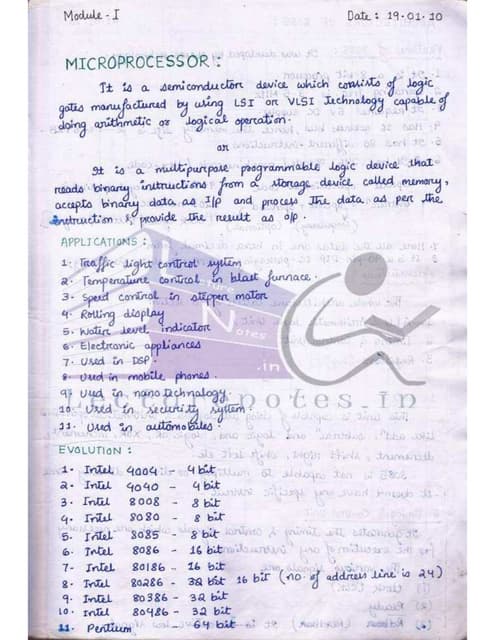 Module - I Date : 19.01.10
MICROPROCESSOR :
It is a semiconductor device which consists of logic
gates manufactured by using LSI or VLSI Technology capable of
doing arithmetic or logical operation.
or
It is a multipurpose programmable logic device that
reads binary instructions from a storage device called memory,
accepts binary data as I/P and process the data as per the
instruction & provide the result as o/p.
APPLICATIONS :
1. Traffic light control system
2. Temperature control in blast furnace.
3. Speed control in stepper motor
4. Rolling display
5. Water level indicator
6. Electronic appliances
7. Used in DSP.
8. Used in mobile phones.
9. Used in nanotechnology.
10. Used in security system.
11. Used in automobiles.
Lecture
Notes
.in
Lecturenotes.in
EVOLUTION :
1. Intel 4004 - 4 bit
2. Intel 4040 - 4 bit
3. Intel 8008 - 8 bit
4. Intel 8080 - 8 bit
5. Intel 8085 - 8 bit
6. Intel 8086 - 16 bit
7. Intel 80186 - 16 bit
8. Intel 80286 - 32 bit 16 bit (no. of address line is 24)
9. Intel 80386 - 32 bit
10. Intel 80486 - 32 bit
11. Pentium 64 bit